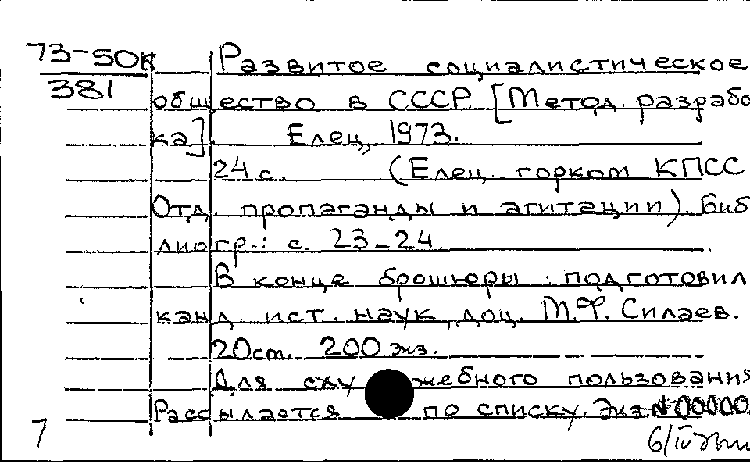 73-50к Развитое социалистическое
381
общество в СССР [Метод. разрабо
ка]. Елец, 1973.
24 с. (Елец. горком КПСС
Отд. пропаганды и агитации). Биб
лиогр.: с. 23-24.
В конце брошюры: подготовил
канд. ист. наук, доц. М.Ф. Силаев.
20 см. 200 экз.
Для служебного пользования
Рассылается по списку. Экз № 00000
7